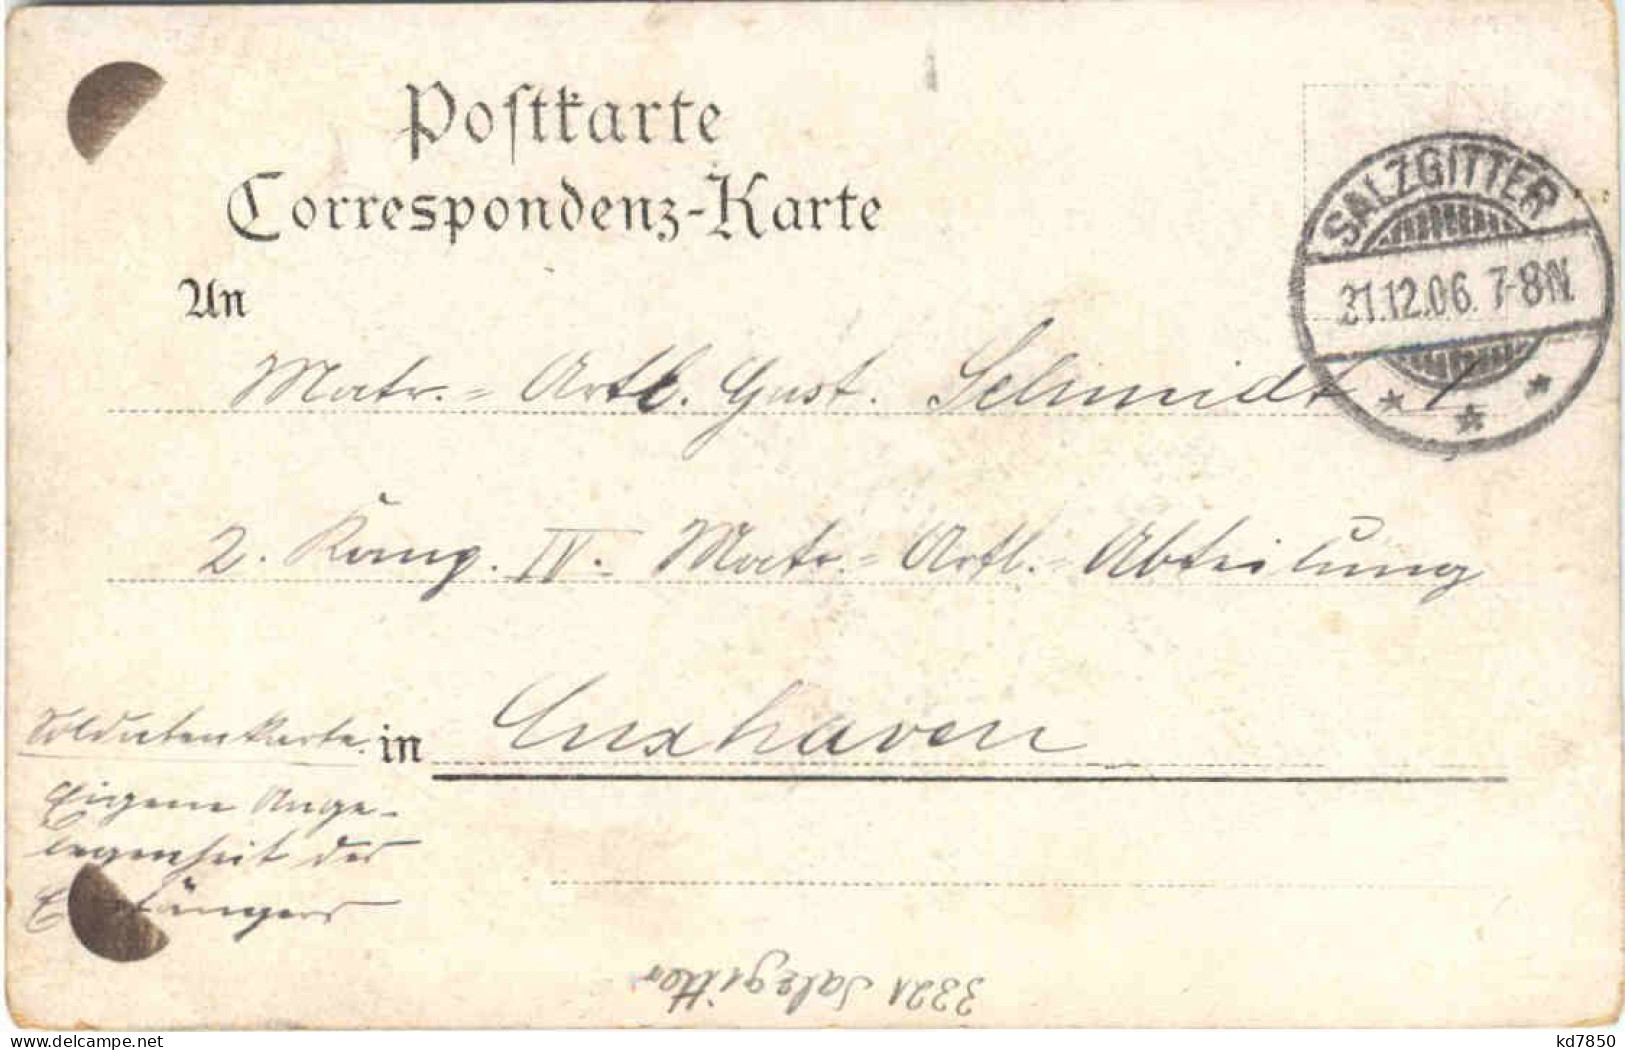 Postkarte
Correspondenz-Karte
SALZGITTER
31.12.06. 7-8N.
An
Matr.= Artl. Gust. Schmidt I
2. Komp. IV. Matr.= Artl.= Abteilung
Soldatenkarte.
in Cuxhaven
Eigene Ange-
legenheit des
Empfängers
3321 Salzgitter
kd7850
delcampe.net